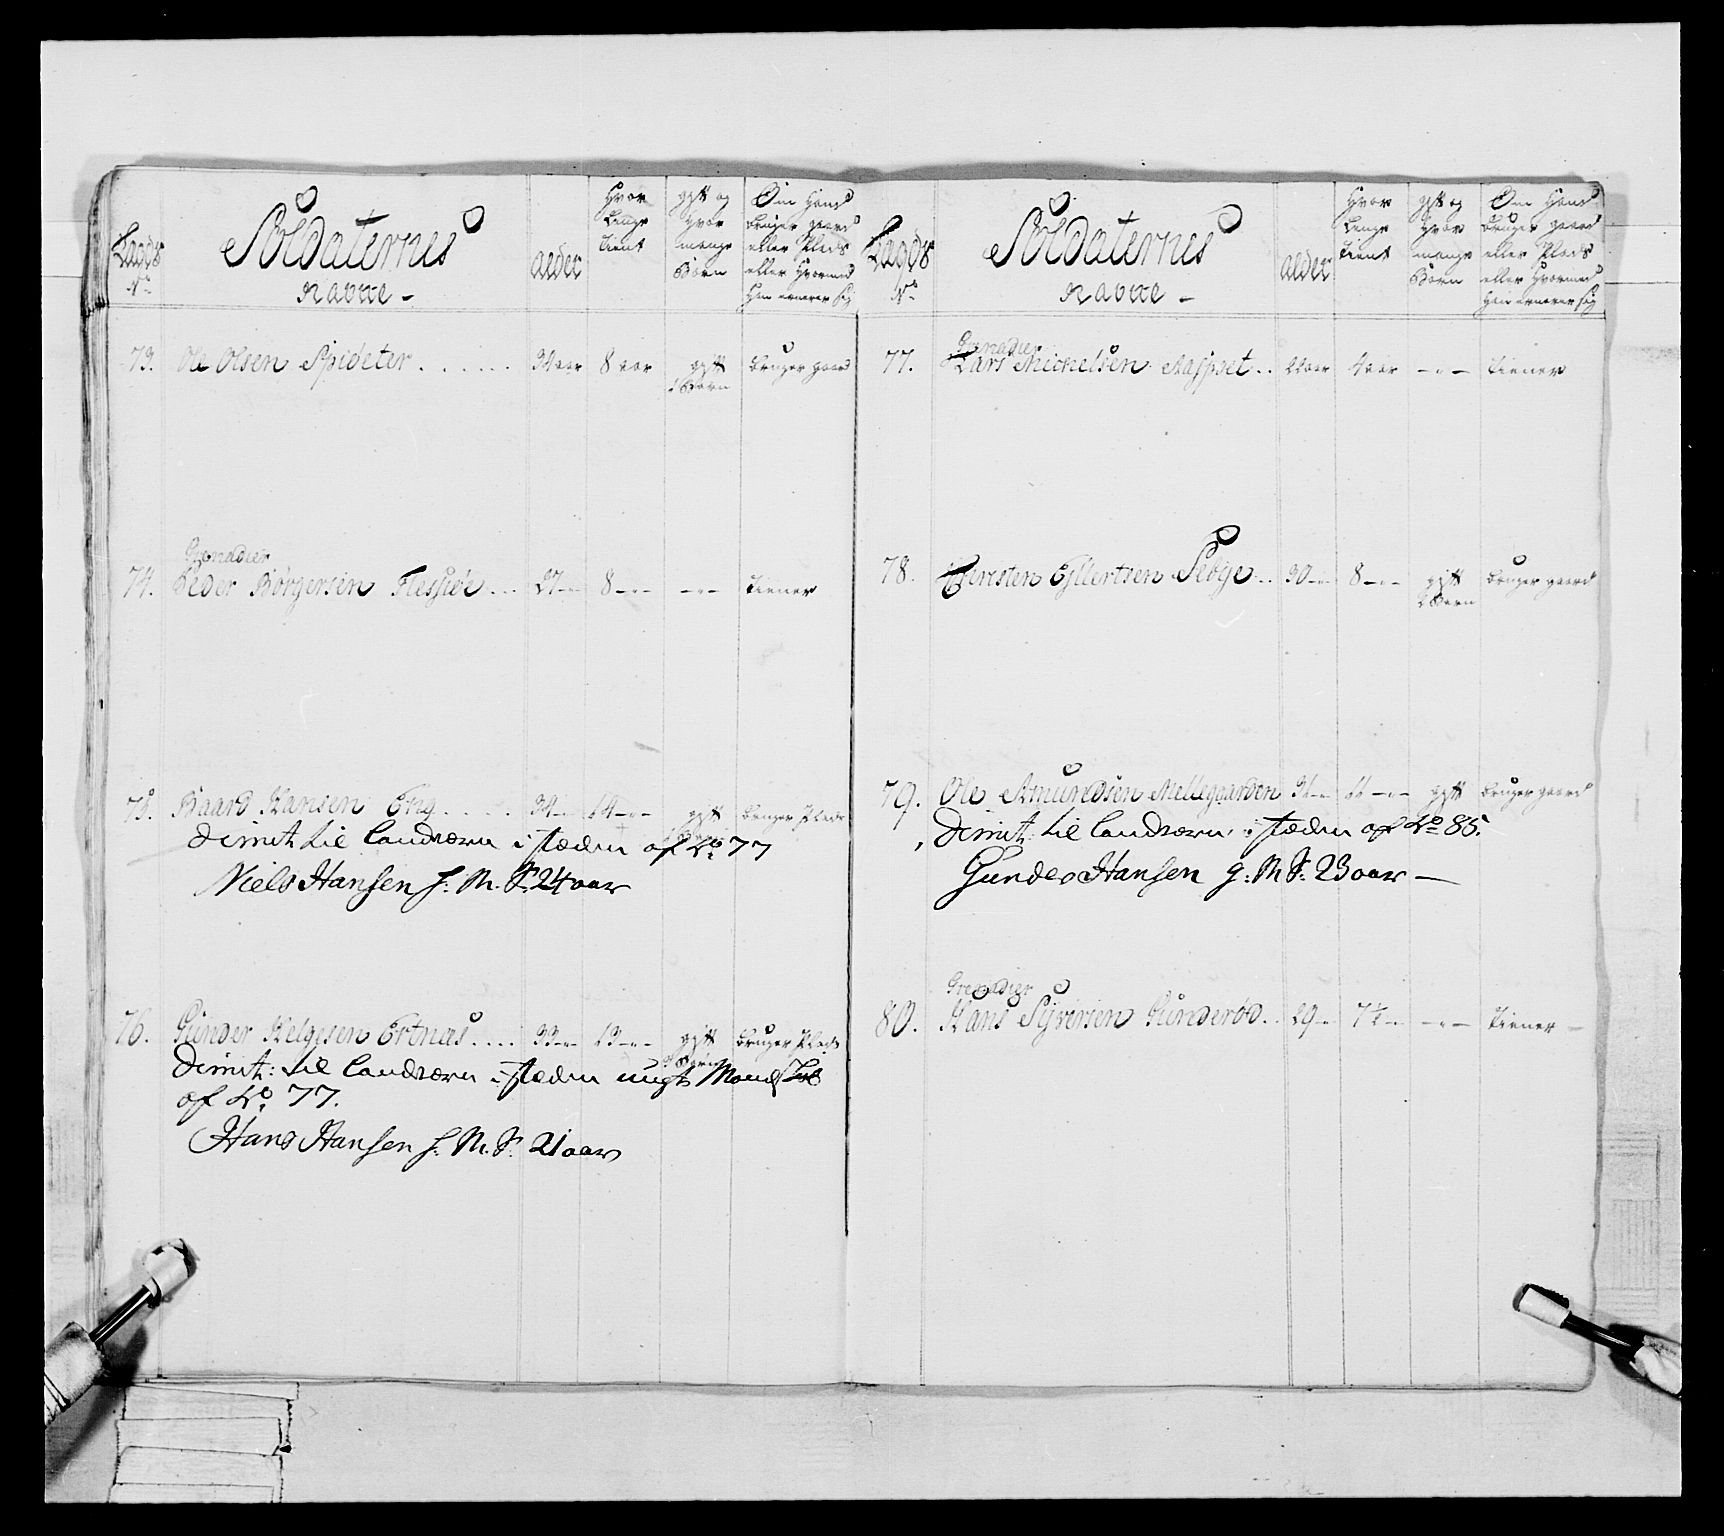 Lægds
No
Soldaternes
Navne -
alder
Hvor
Lenge
tient
gift og
Hvor
mange
Børn
Om Hand
bruger gaard
eller Plads
eller Hvormed
Han ernerer sig
73. Ole Olsen Spideter . . . . . . 34 aar 8 aar gift bruger gaard
1 Barn
Grenadier
74. Peder Børgersen Flesjøe . . . 27 -"- 8 -"- -"- tiener
75. Baard Hansen Eng . . . . . 34 -"- 14 -"- gift bruger Plads
dimit til landværn i stæden af No 77
Niels Hansen h: M. S: 24 aar
76. Gunder Helgesen Ertnæs . . . . 33 -"- 13 -"- gift bruger Plads
Børn
Dimit: til landværn i stæden ungt Mands
af No 77.
Hans Hansen h: M. S: 21 aar
Lægds
No
Soldaternes
Navne -
alder
Hvor
Lenge
tient
gift og
Hvor
mange
Børn
Om Hand
bruger gaard
eller Plads
eller Hvormed
Han ernerer sig
Grenadier
77. Lars Michelsen Aasset . . 22 aar 4 aar -"- tiener
78. Christen Eyllertsen Sebye . . 30 -"- 8 -"- gift bruger gaard
2 Børn
79. Ole Amundsen Mellegaarden 31 -"- 11 -"- gift bruger gaard
Dimit: til landværn i stæden af No 85.
Gunder Hansen g: M S: 23 aar —
Grenadier
80. Hans Syversen Gunderød . . 29 -"- 7½ -"- -"- tiener -